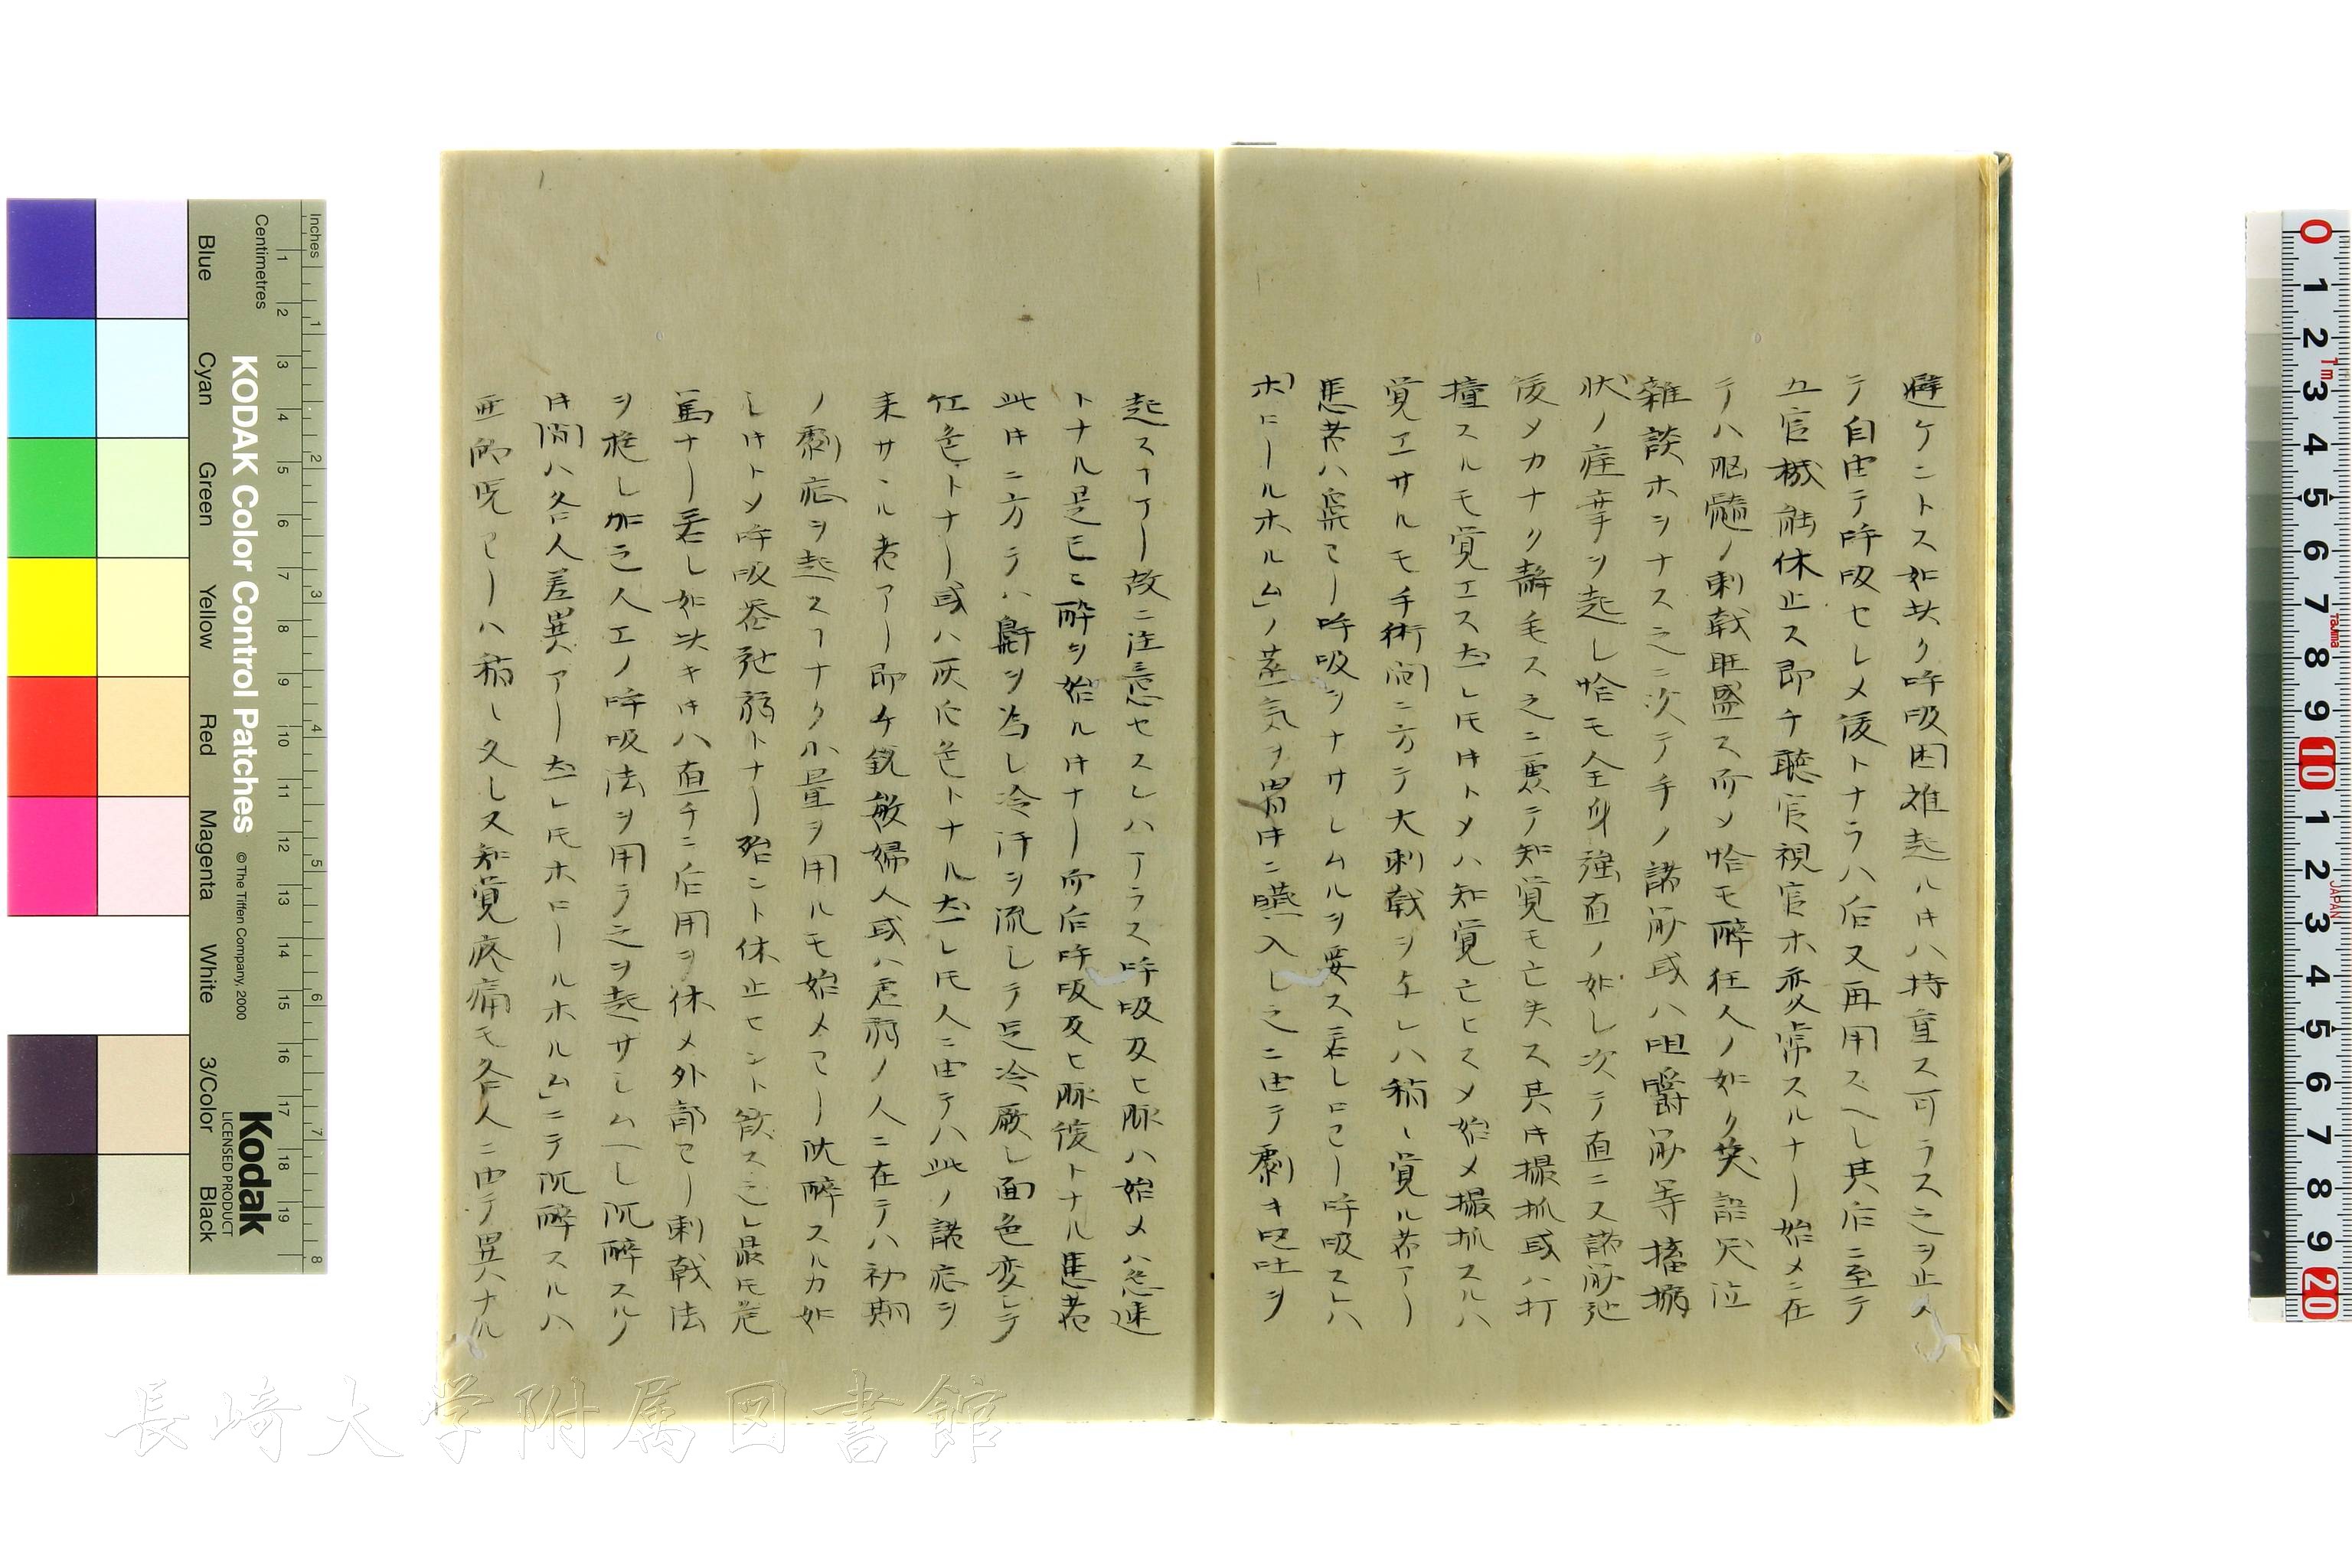 避ケントス如此ク呼吸困難起ルキハ持重ス可ラス之ヲ止メ
テ自由テ呼吸セシメ後トナラハ后又再用スヘし其后ニ至テ
五官機能休止ス即チ聴官視官ホ変常スルナー始メニ在
テハ脳髄ノ刺戟旺盛ス而メ恰モ酔狂人ノ如ク笑語哭泣
雑談ホヲナス之ニ次テ手ノ諸筋或ハ咀嚼筋等搐搦
状ノ症夲ヲ起し恰モ全身強直ノ如し次テ直ニス諸筋弛
後メカナク静毛ス之ニ悪テ知覚モ亡失ス其キ撮抓或ハ打
撞スルモ覚エス左レ𪜈キトメハ知覚亡ヒスメ始メ撮抓スルハ
覚エサルモ手術間ニ方テ大刺戟ヲ与レハ稍〻覚ル者アー
患者ハ鼻ヨー呼吸ヲナサレムルヲ要ス若し口ヨー呼吸スレハ
ホロールホルム」ノ蒸気ヲ胃中ニ嚥入し之ニ由テ劇キ嘔吐ヲ
起スヿアー故ニ注意セスレハアラス呼吸及ヒ脈ハ始メハ急速
トナル是已ニ酔ヲ始ルキナー而后呼吸及ヒ脈後トナル患者
此キニ方テハ鼾ヲ為し冷汗ヲ流しテ足冷厥し面色変レテ
紅色トナー或ハ灰白色トナル左レ𪜈人ニ由テハ此ノ諸症ヲ
来サヽル者アー即チ鋭敏婦人或ハ虚弱ノ人ニ在テハ初期
ノ劇症ヲ起スヿナク小量ヲ用ルモ始メヨー沈酔スルカ如
しキトメ呼吸甚弛弱トナー殆ント休止セント欲ス之レ最モ危
篤ナー若し如此キキハ直チニ后用ヲ休メ外部ヨー刺戟法
ヲ施し加之人工ノ呼吸法ヲ用テ之ヲ起サしムヘし沉酔スルノ
キ間ハ各人差異アー左レ𪜈ホロールホルム」ニテ沉酔スルハ
亜的児ヨーハ稍〻久し又知覚疼痛モ各人ニ由テ異ナル
KODAK Color Control Patches
©The Tiffen Company, 2000
Kodak
LICENSED PRODUCT
Inches
Centimetres
Blue
Cyan
Green
Yellow
Red
Magenta
White
3/Color
Black
長崎大学附属図書館